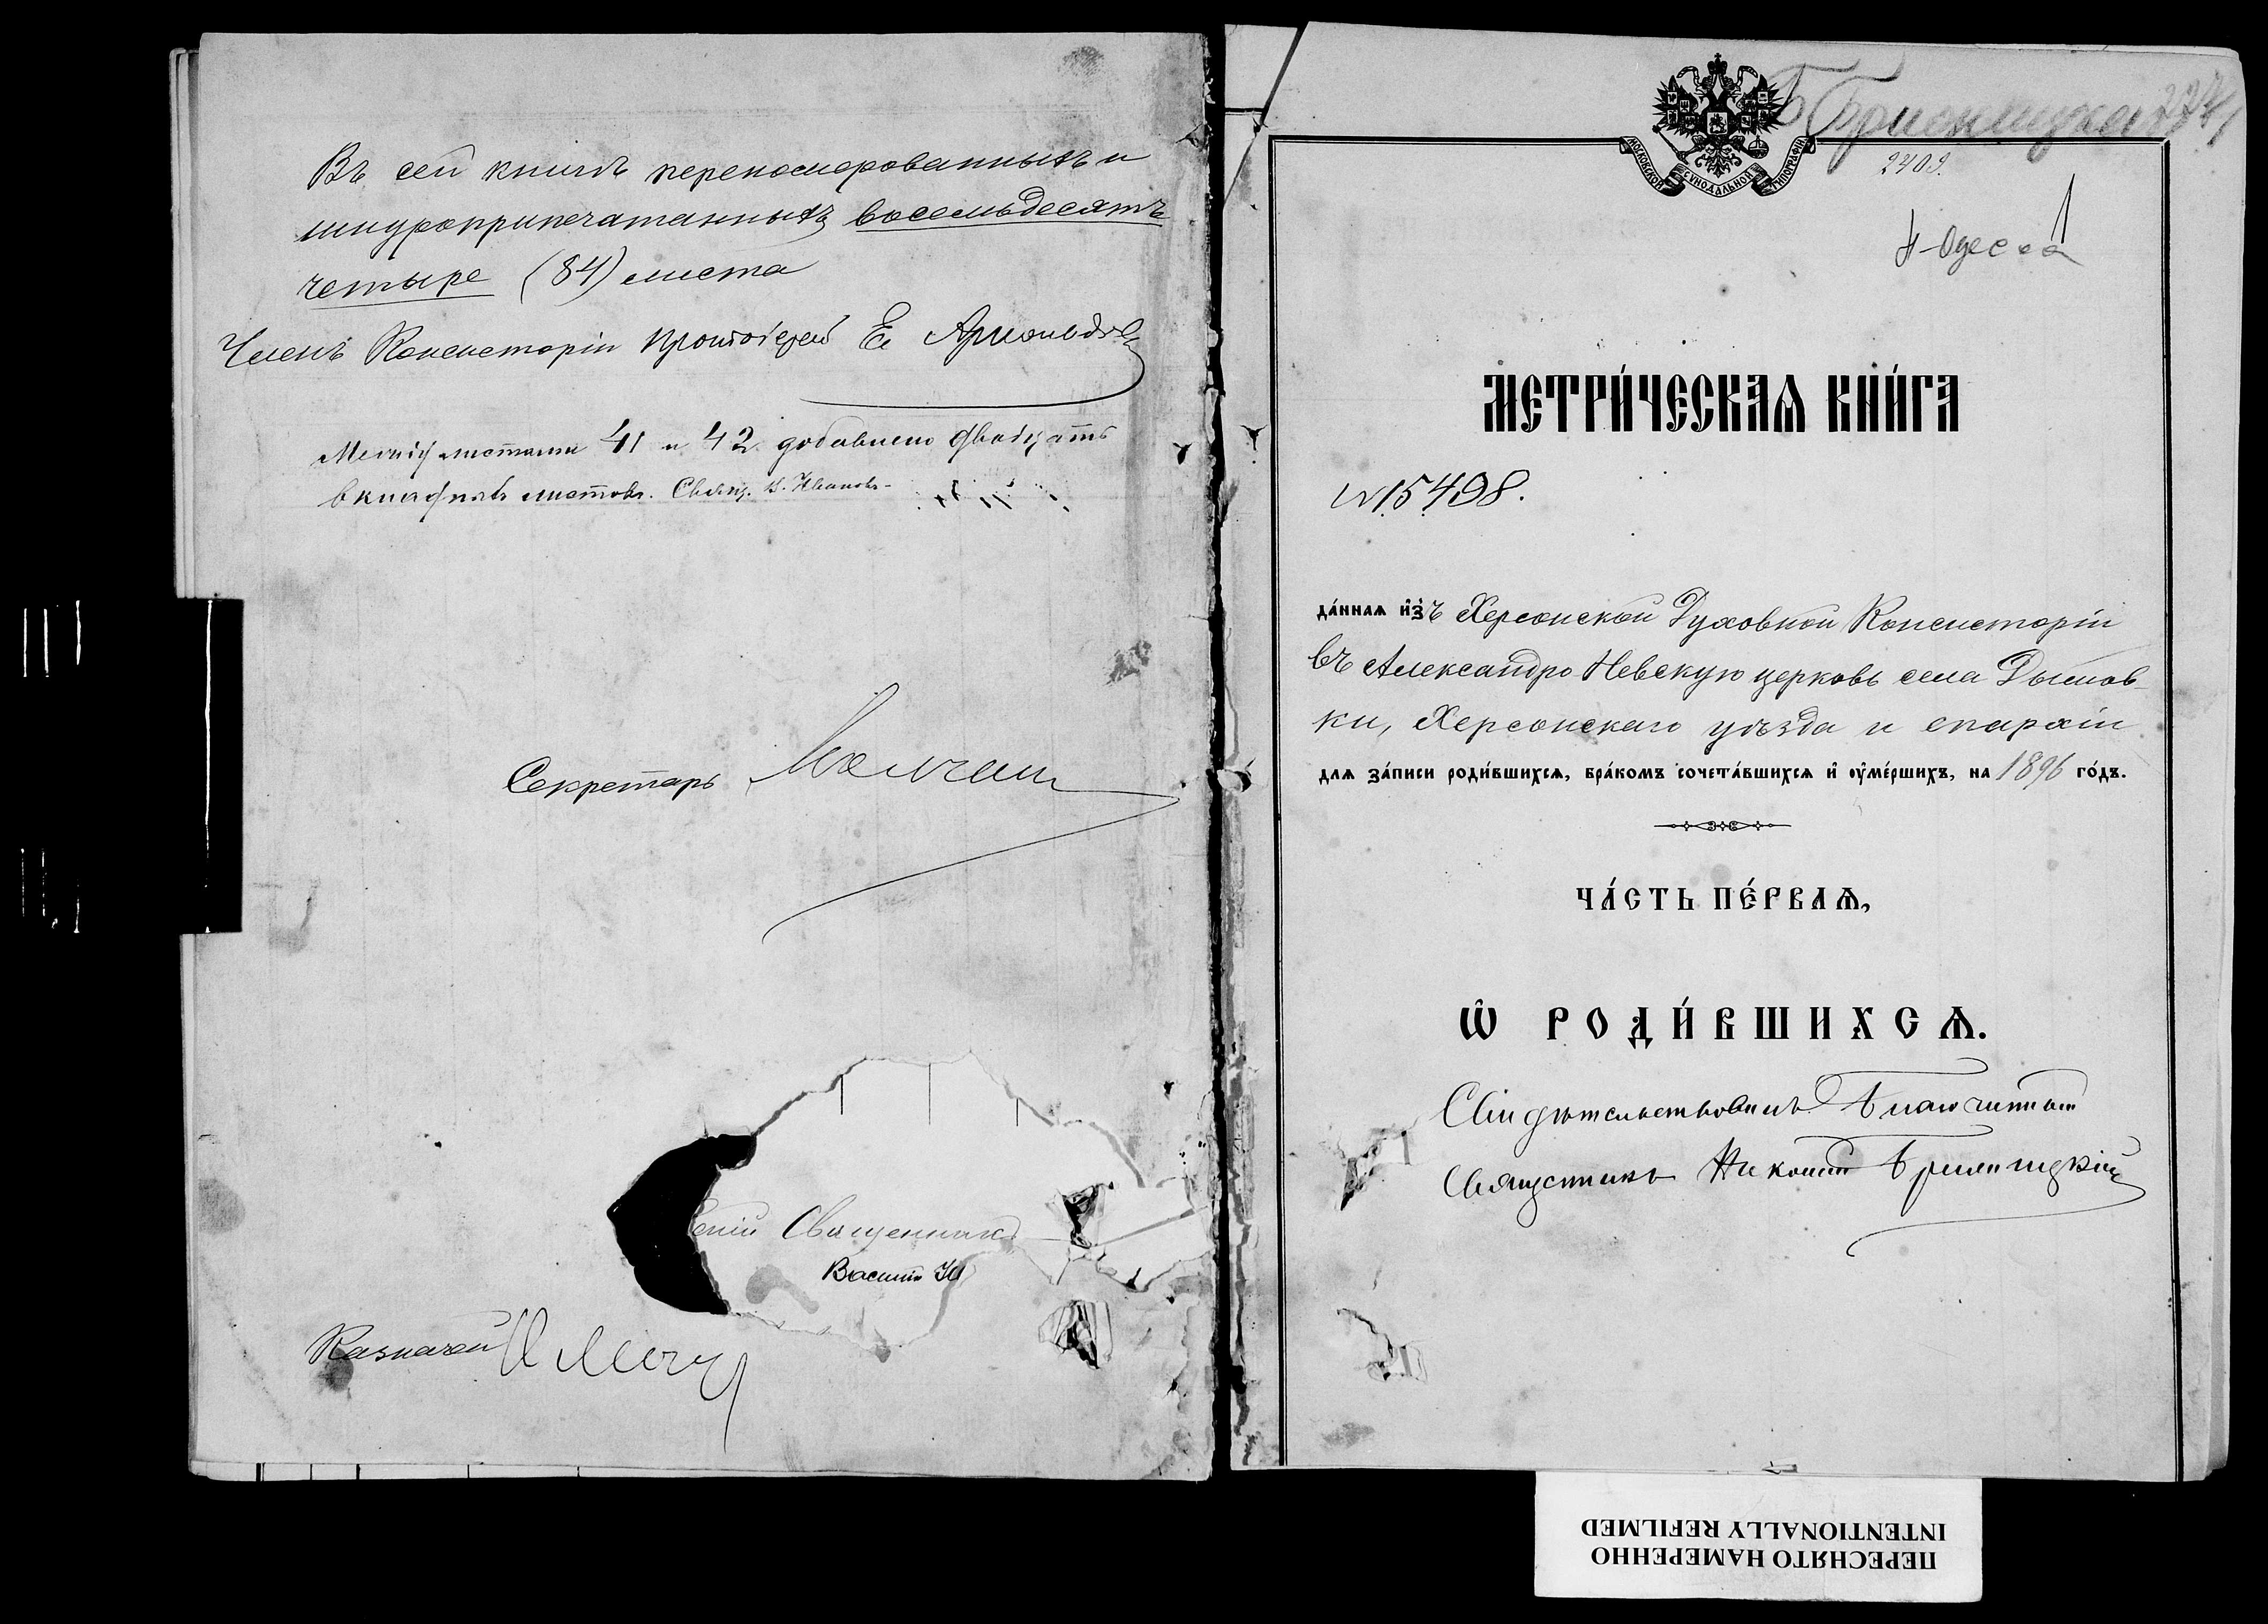 Въ сей книгѣ перенумерованныхъ и
шнуроприпечатанныхъ восемьдесятъ
четыре (84) листа
Членъ Консисторіи Протоіерей Е. Арнольдовъ
Между листами 41 и 42 добавлено двадцать
вкладныхъ листовъ. Свящ. В. Ивановъ
Секретарь
Священникъ
Василій
Казначей
МОСКОВСКОЙ СѴНОДАЛЬНОЙ ТИПОГРАФІИ
2409.
Одесса
1
МЕТРИ́ЧЕСКАѦ КНИ́ГА
№15498.
да́ннаѧ и҆зъ Херсонской Духовной Консисторіи
въ Александро Невскую церковь села Дымов-
ки, Херсонскаго уѣзда и епархіи
длѧ за́писи роди́вшихсѧ, бра́комъ сочета́вшихсѧ и҆ ᲂу҆ме́ршихъ, на 1896 го́дъ.
ЧА́СТЬ ПЕ́РВАѦ,
Ѡ҆ РОДИ́ВШИХСѦ.
Свидѣтельствовалъ Благочинный
Священникъ Бриницкій
ПЕРЕСНЯТО НАМЕРЕННО
INTENTIONALLY REFILMED